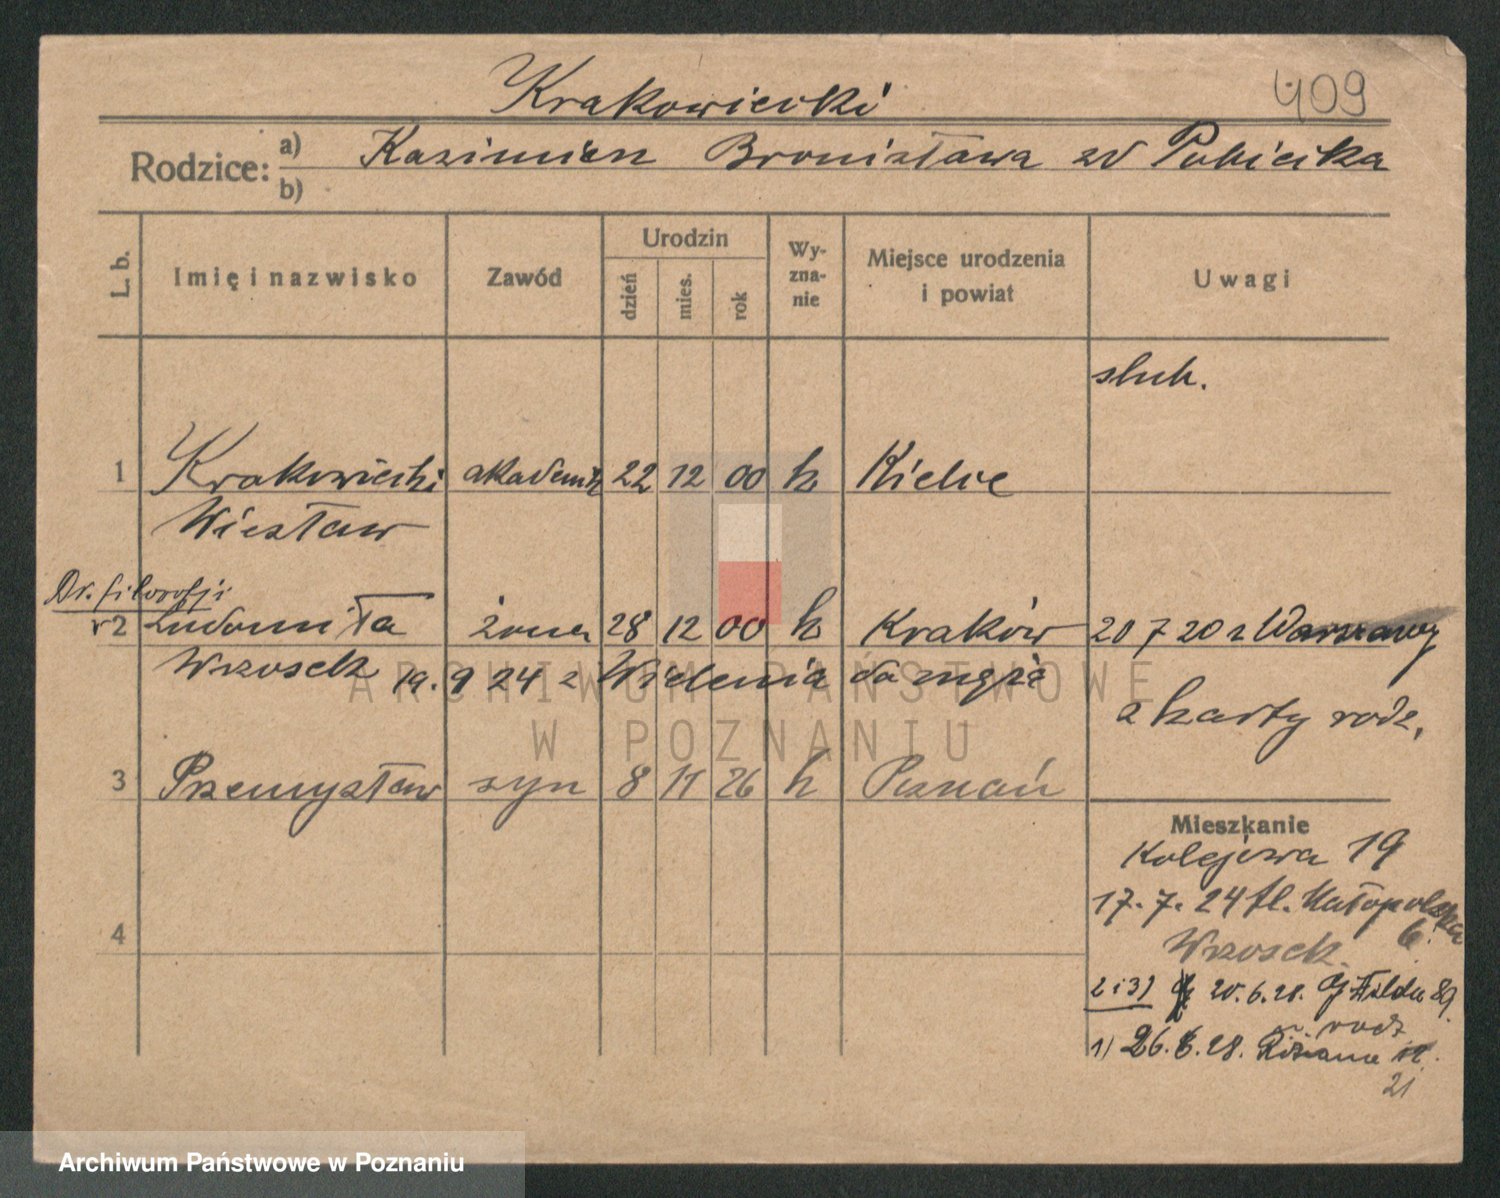 409
Krakowiecki
Rodzice: a) Kazimierz Bronisława zd Pubicika
b)
L. b. Imię i nazwisko Zawód Urodzin dzień mies. rok Wy-zna-nie Miejsce urodzenia i powiat Uwagi
słuh.
1 Krakowiecki akademik 22 12 00 k Kielce
Wiesław
Dr. filozofji
r2 Ludomiła żona 28 12 00 k Kraków 20 7 20 z Warszawy
Wrzosek 19. 9 24 z Wielenia do męża
z karty rodz.
3 Przemysław syn 8 11 26 k Poznań
Mieszkanie
Kolejowa 19
17. 7. 24 fl. Małopolska
6.
4
Wrzosek
2 i 3) 20. 6. 28. G Wilda 89.
rodz
1) 26. 6. 28. Różana
21
ARCHIWUM PAŃSTWOWE
W POZNANIU
Archiwum Państwowe w Poznaniu